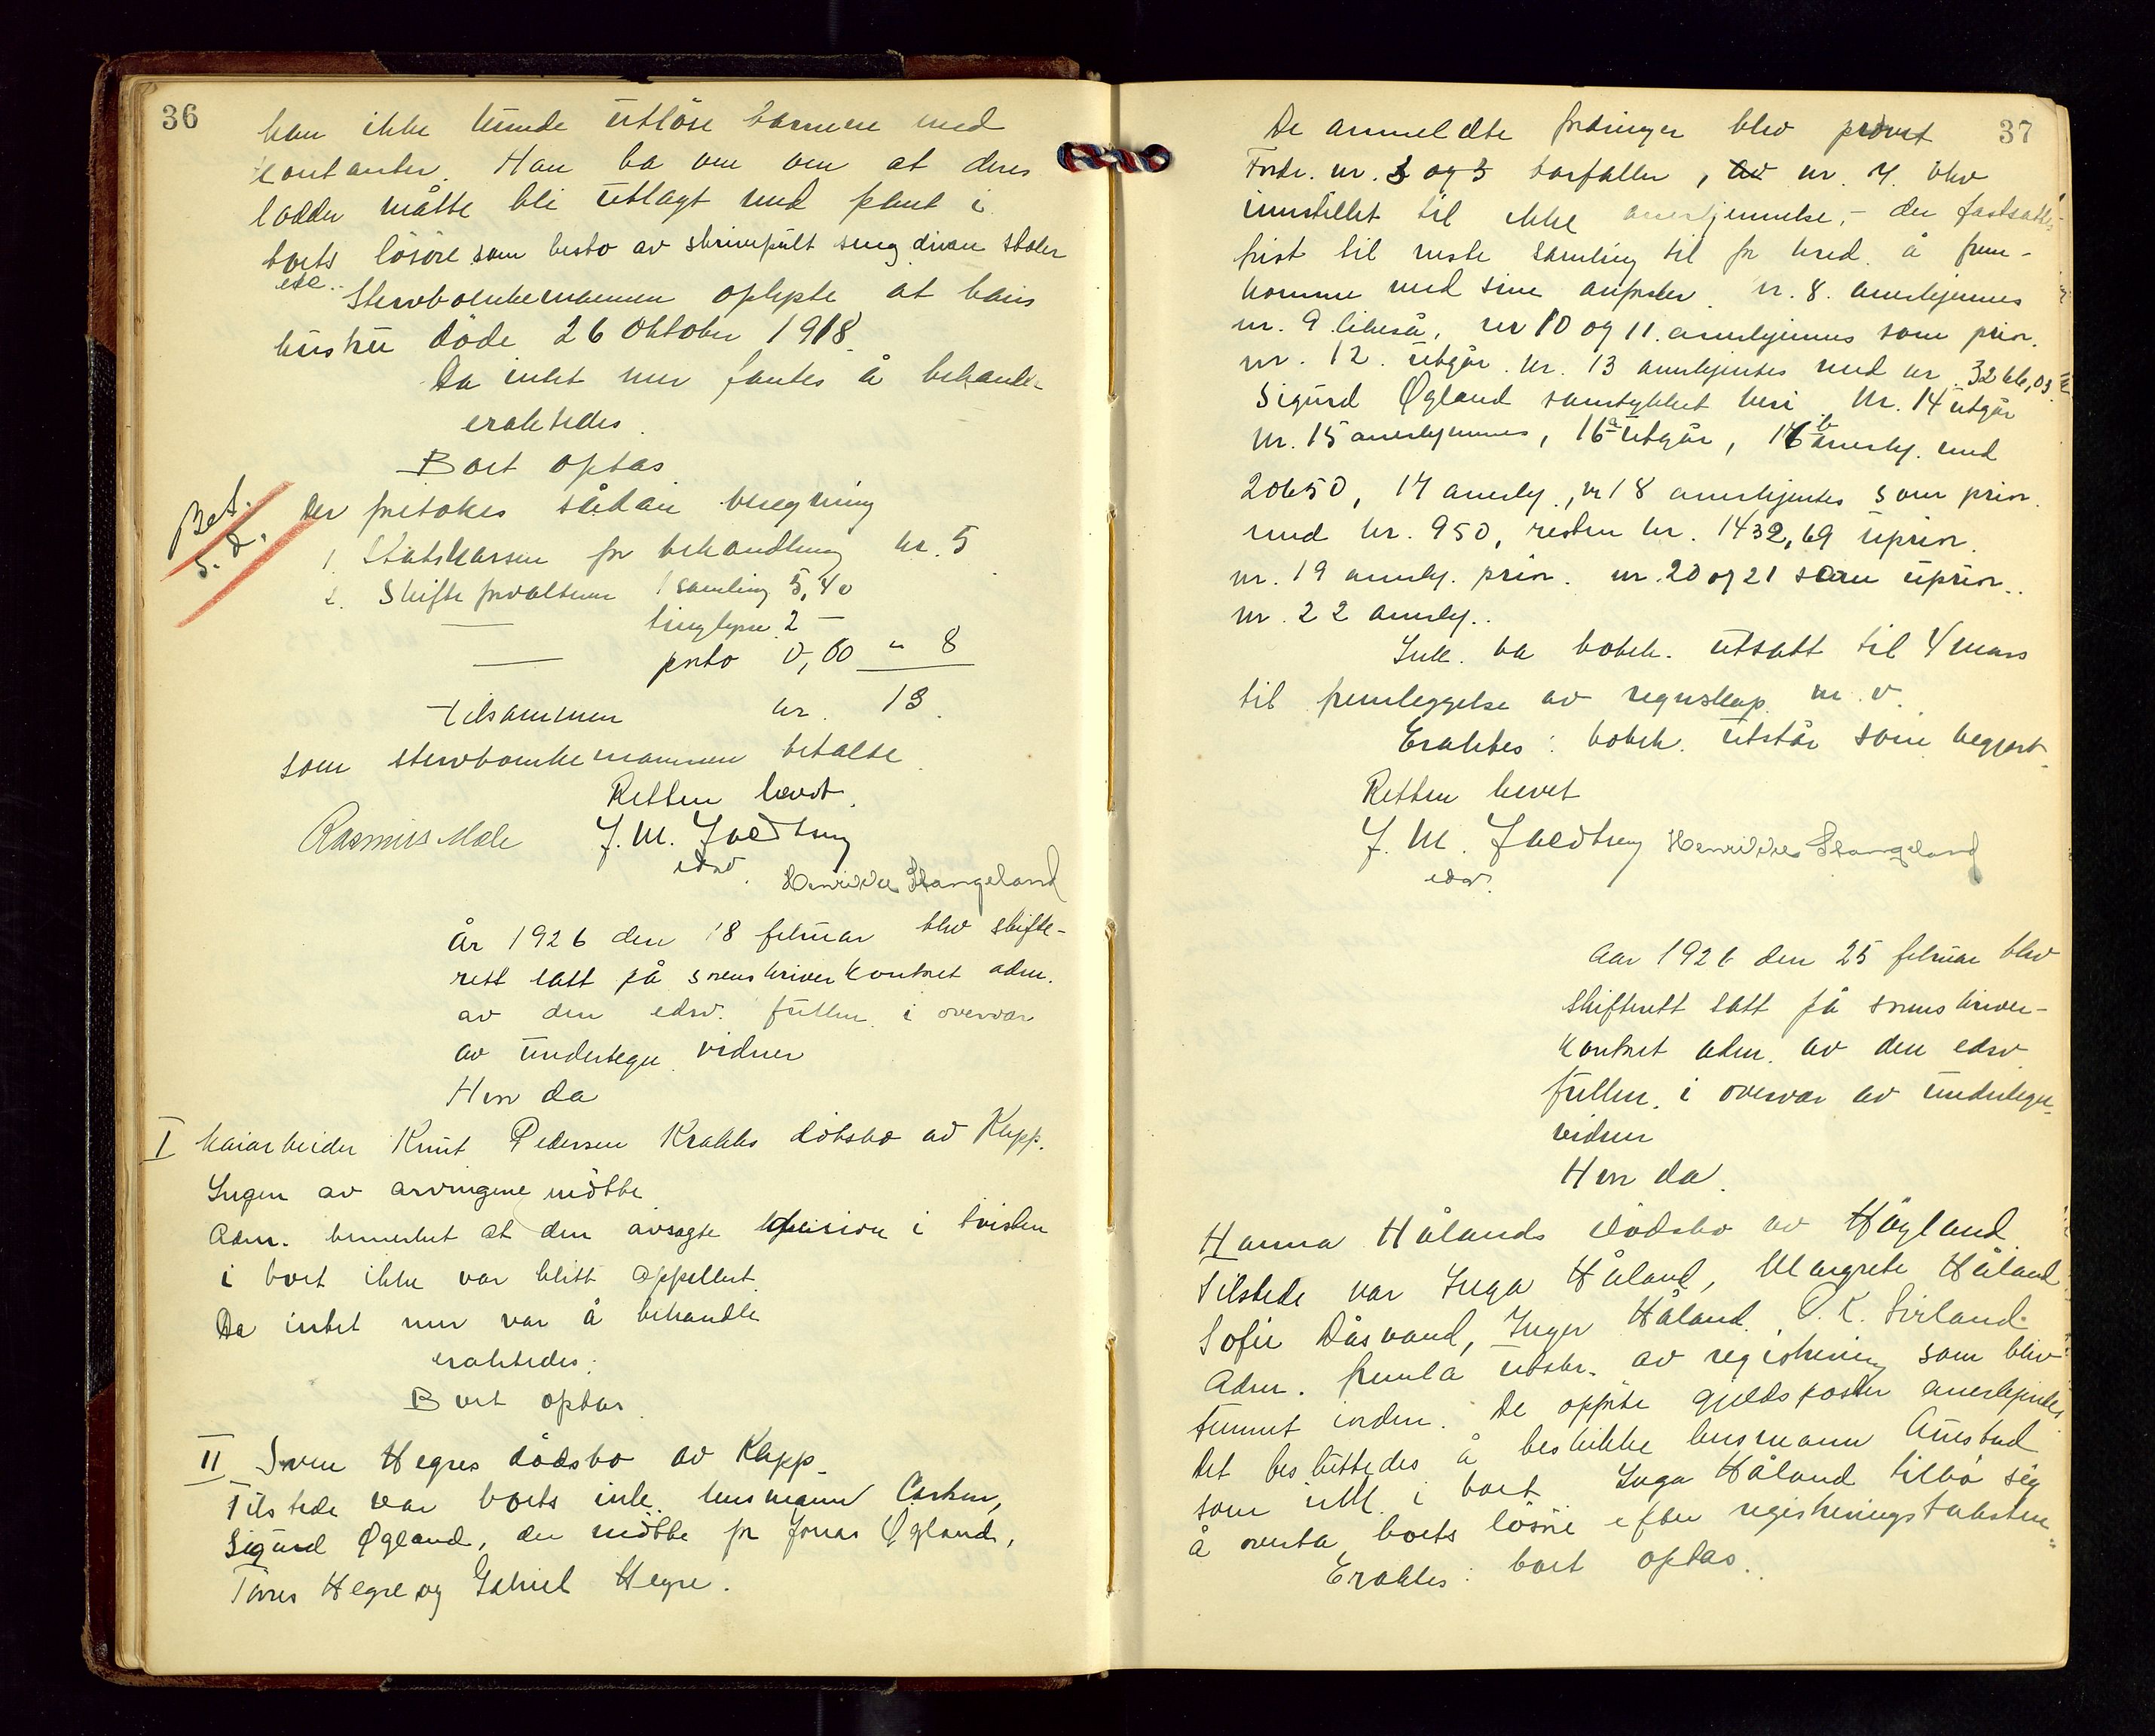 36
han ikke kunde utløse barnene med
kontanter. Han ba om at deres
lodder måtte bli utlagt med pant i
boets løsøre som besto av skrivepult seng divan stoler
etc.. Stervboenkemannen oplyste at hans
hustru døde 26 oktober 1918.
Da intet mer fantes å behandle
eraktedes.
Boet optas
Bet.
Der foretokes sådan beregning
1. Statskassen for behandling kr. 5
2. Skifteforvalteren 1 samling 5,40
tinglysn. 2 —
porto 0,60 " 8
Tilsammen kr. 13.
som stervboenkemannen betalte.
Retten hævet.
Rasmus Mæle J. M. Ivedtsng
edsv. Henrikke Stangeland
År 1926 den 18 februar blev skifte-
rett satt på sorenskriverkontoret adm.
av den edsv. fullm. i overvær
av undertegn. vidner
Hvor da
I kaiarbeider Knut Pedersen Krakks dødsbo av Klepp.
Ingen av arvingene møtte
Adm. bemerket at den avsagte decision i tvisten
i boet ikke var blitt appellert.
Da intet mer var å behandle
eraktedes:
Boet optas
II Sven Hegres dødsbo av Klepp.
Tilstede var boets ink. lensmann Carlsen,
Sigurd Øgland, der møtte for Jonas Øgland,
Tørres Hegre og Gabriel Hegre.
37
De anmeldte fordringer blev prøvet
Fordr. nr. 3 og 5 bortfaller, nr. 4. blev
innstillet til ikke anerkjennelse, - der fastsattes
frist til neste samling til for kred. å frem-
komme med sine anførsler. Nr. 8. anerkjennes
nr. 9 likeså, nr 10 og 11. anerkjennes som prior.
nr. 12. utgår. Nr. 13 anerkjentes med kr. 3266,03.
Sigurd Øgland samtykket heri. Nr. 14 utgår
Nr. 15 anerkjennes, 16 a utgår, 16 b anerkj. med
20650, 17 anerkj., nr 18 anerkjentes som prior.
med kr. 950, resten kr. 1432,69 uprior.
nr. 19 anerkj. prior. nr. 20 og 21 som uprior..
nr. 22 anerkj..
Ink. ba bobeh. utsatt til 4 mars
til fremleggelse av regnskap m. v.
Eraktes: bobeh. utstår som begjært.
Retten hevet
J. M. Ivedtsng Henrikke Stangeland
edsv.
Aar 1926 den 25 februar blev
skifterett satt på sorenskriver-
kontoret adm. av den edsv.
fullm. i overvær av undertegn.
vidner
Hvor da.
Hanna Hålands dødsbo av Høyland.
Tilstede var Inga Håland, Margrete Håland
Sofie Dåsvand, Inger Håland. O. K. Sirland.
Adm. fremla utskr. av registrering som blev
funnet i orden. De opførte gjeldsposter anerkjentes
Det besluttedes å beskikke lensmann Austbad
som ink. i boet Inga Håland tilbø sig
å overta boets løsøre efter registreringstaksten.
Eraktes: boet optas.